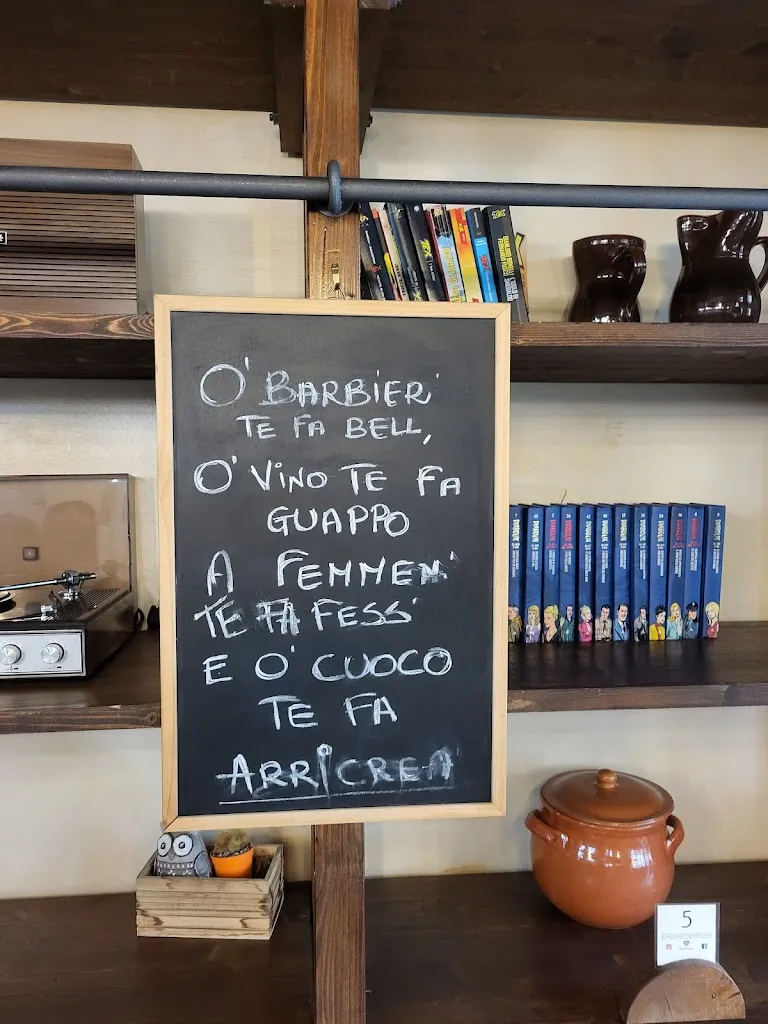 O' BARBIER'
TE FA BELL,
O' VINO TE FA
GUAPPO
A FEMMEN'
TE FA FESS'
E O' CUOCO
TE FA
ARRICREA'
5